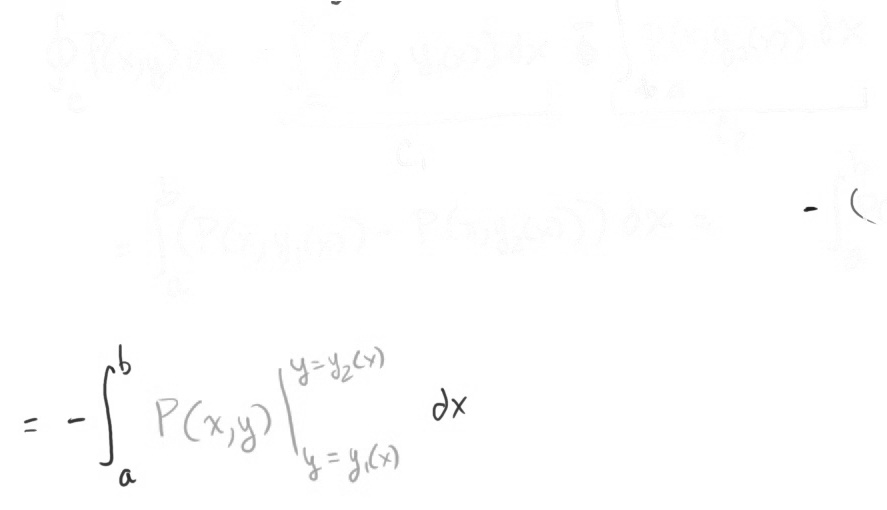 ∮_C P(x,y) dx = ∫ P(x, y₁(x)) dx ∫ P(x, y₂(x)) dx
C₁ C₂
= ∫_a^b (P(x, y₁(x)) - P(x, y₂(x))) dx = - ( ∫_a^b
= -∫_a^b P(x,y) |_{y = y₁(x)}^{y = y₂(x)} dx